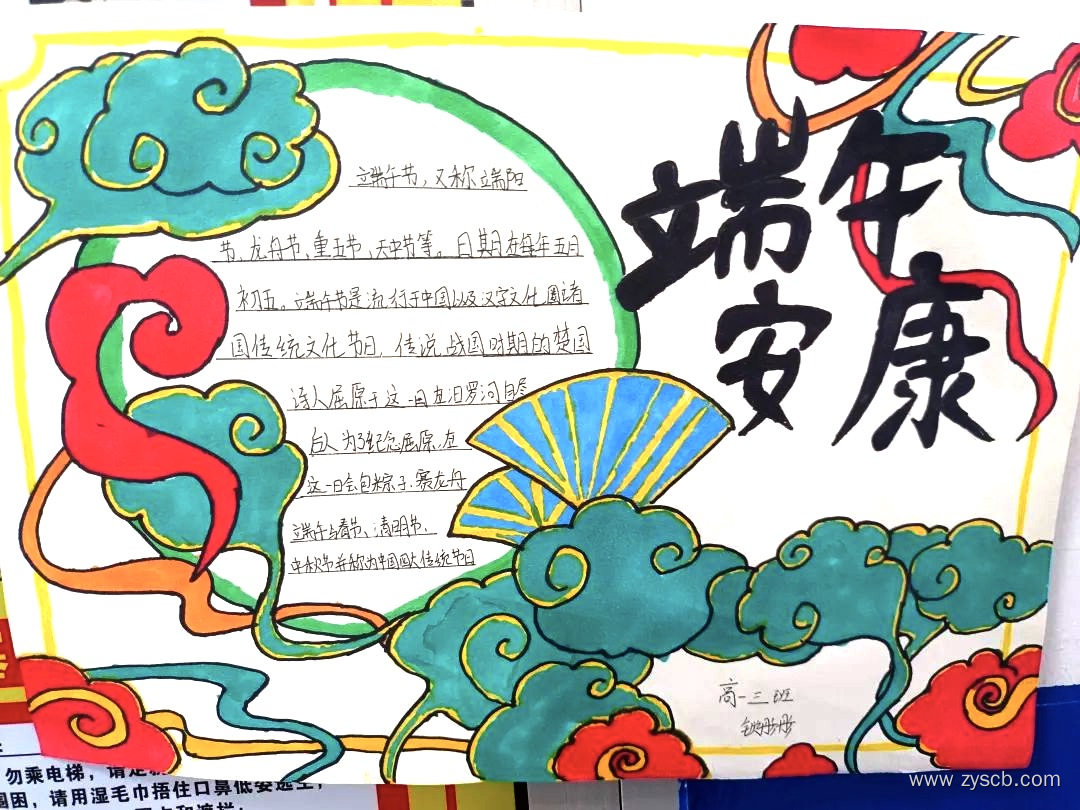 端午
安康
端午节，又称端阳
节、龙舟节、重五节、天中节等。日期在每年五月
初五。端午节是流行于中国以及汉字文化圈诸
国传统文化节日，传说战国时期的楚国
诗人屈原于这一日在汨罗河自
后人为了纪念屈原，在
这一日会包粽子、赛龙舟
端午与春节、清明节、
中秋节并称为中国四大传统节日
高一三班
彤彤
勿乘电梯，请走
困，请用湿毛巾捂住口鼻低姿逃生，
www.zyscb.com